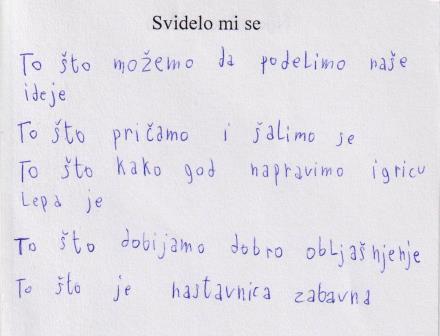 Svidelo mi se
To što možemo da podelimo naše
ideje
To što pričamo i šalimo se
To što kako god napravimo igricu
Lepa je
To što dobijamo dobro obljašnjenje
To što je nastavnica zabavna